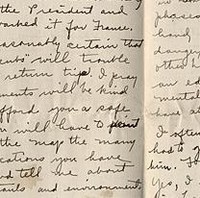 the President and
worked it for France.
easonably certain that
ents will trouble
return trip. I pray
ments will be kind
afford you a safe
u will have to point
the map the many
cations you have
nd tell me about
tails and environment.
phases
hand
danger
other h
an ed
mental
have at
I often
had to
him. I
Yes, I